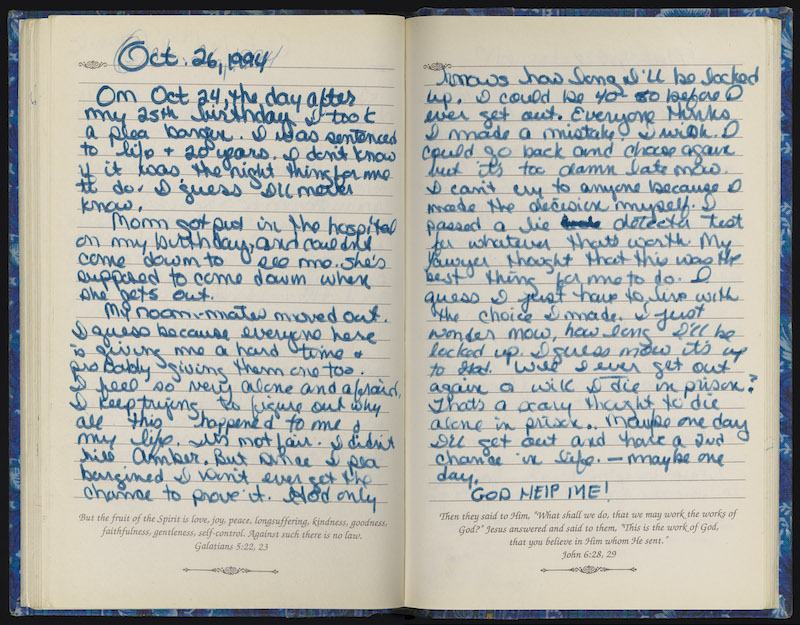 Oct. 26, 1994
On Oct 24, the day after
my 25th birthday I took
a plea barger. I was sentenced
to life + 20 years. I don't know
if it was the right thing for me
to do. I guess I'll never
know.
Mom got put in the hospital
on my birthday, and couldn't
come down to see me. She's
supposed to come down when
she gets out.
My room-mates moved out.
I guess because everyone here
is giving me a hard time &
probably giving them one too.
I feel so very alone and afraid,
I keep trying to figure out why
all this happened to me &
my life. It's not fair. I didn't
kill Amber. But since I plea
bargined I won't ever get the
chance to prove it. God only
But the fruit of the Spirit is love, joy, peace, longsuffering, kindness, goodness,
faithfulness, gentleness, self-control. Against such there is no law.
Galatians 5:22, 23
knows how long I'll be locked
up. I could be 40- 50 before I
ever get out. Everyone thinks
I made a mistake. I wish I
could go back and chose again
but it's too damn late now.
I can't cry to anyone because I
made the decision myself. I
passed a lie detector test
for whatever thats worth. My
lawyer thought that this was the
best thing for me to do. I
guess I just have to live with
the choice I made. I just
wonder now, how long I'll be
locked up. I guess now it's up
to God. Will I ever get out
again or will I die in prison?
Thats a scary thought to die
alone in prison.. Maybe one day
I'll get out and have a 2nd
chance in life. — maybe one
day.
GOD HElP ME!
Then they said to Him, "What shall we do, that we may work the works of
God?" Jesus answered and said to them, "This is the work of God,
that you believe in Him whom He sent."
John 6:28, 29